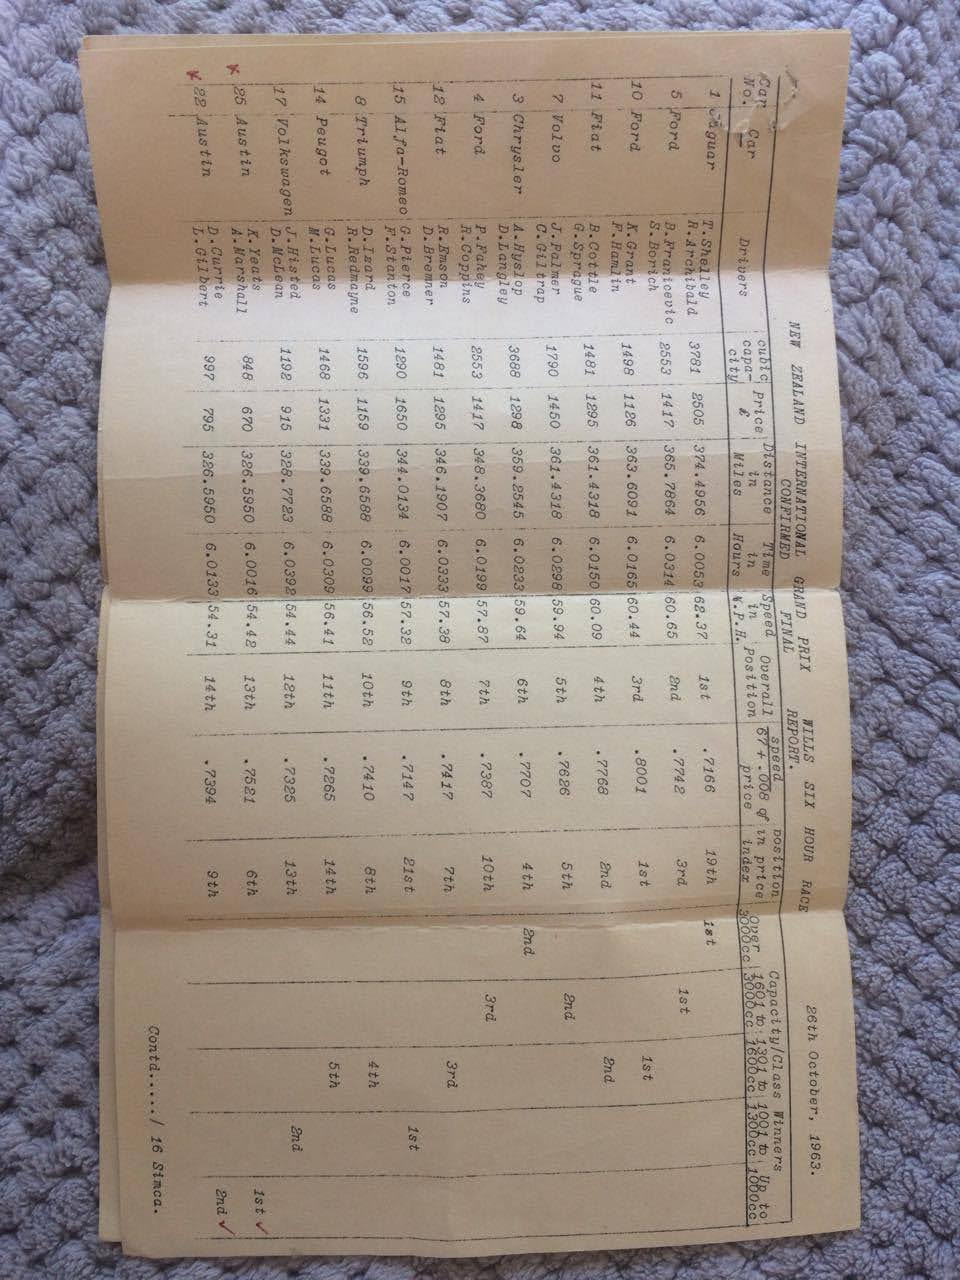 NEW ZEALAND INTERNATIONAL GRAND PRIX WILLS SIX HOUR RACE 26th October, 1963.
CONFIRMED FINAL REPORT.
Car No. Car Drivers cubic capa-city Price £ Distance in Miles Time in Hours Speed in M.P.H. Overall Position speed 67 + .008 of price position in price index Capacity/Class Winners Over 3000cc 1601 to 3000cc 1301 to 1600cc 1001 to 1300cc Up to 1000cc
1 Jaguar T.Shelley 3781 2505 374.4956 6.0053 62.37 1st .7166 19th 1st
R.Archibald
5 Ford B.Franicevic 2553 1417 365.7864 6.0314 60.65 2nd .7742 3rd 1st
S.Borich
10 Ford K.Grant 1498 1126 363.6091 6.0165 60.44 3rd .8001 1st 1st
F.Hamlin
11 Fiat B.Cottle 1481 1295 361.4318 6.0150 60.09 4th .7768 2nd 2nd
G.Sprague
7 Volvo J.Palmer 1790 1450 361.4318 6.0298 59.94 5th .7626 5th 2nd
C.Giltrap
3 Chrysler A.Hyslop 3688 1298 359.2545 6.0233 59.64 6th .7707 4th 2nd
D.Langley
4 Ford P.Fahey 2553 1417 348.3680 6.0199 57.87 7th .7387 10th 3rd
R.Coppins
12 Fiat R.Emson 1481 1295 346.1907 6.0333 57.38 8th .7417 7th 3rd
D.Bremner
15 Alfa-Romeo G.Pierce 1290 1650 344.0134 6.0017 57.32 9th .7147 21st 1st
F.Stanton
8 Triumph D.Izard 1596 1159 339.6588 6.0099 56.52 10th .7410 8th 4th
R.Redmayne
14 Peugot G.Lucas 1468 1331 339.6588 6.0309 56.41 11th .7265 14th 5th
M.Lucas
17 Volkswagen J.Histed 1192 915 328.7723 6.0392 54.44 12th .7325 13th 2nd
D.McLean
25 Austin K.Yeats 848 670 326.5950 6.0016 54.42 13th .7521 6th 1st
A.Marshall
22 Austin D.Currie 997 795 326.5950 6.0133 54.31 14th .7394 9th 2nd
L.Gilbert
Contd...../ 16 Simca.